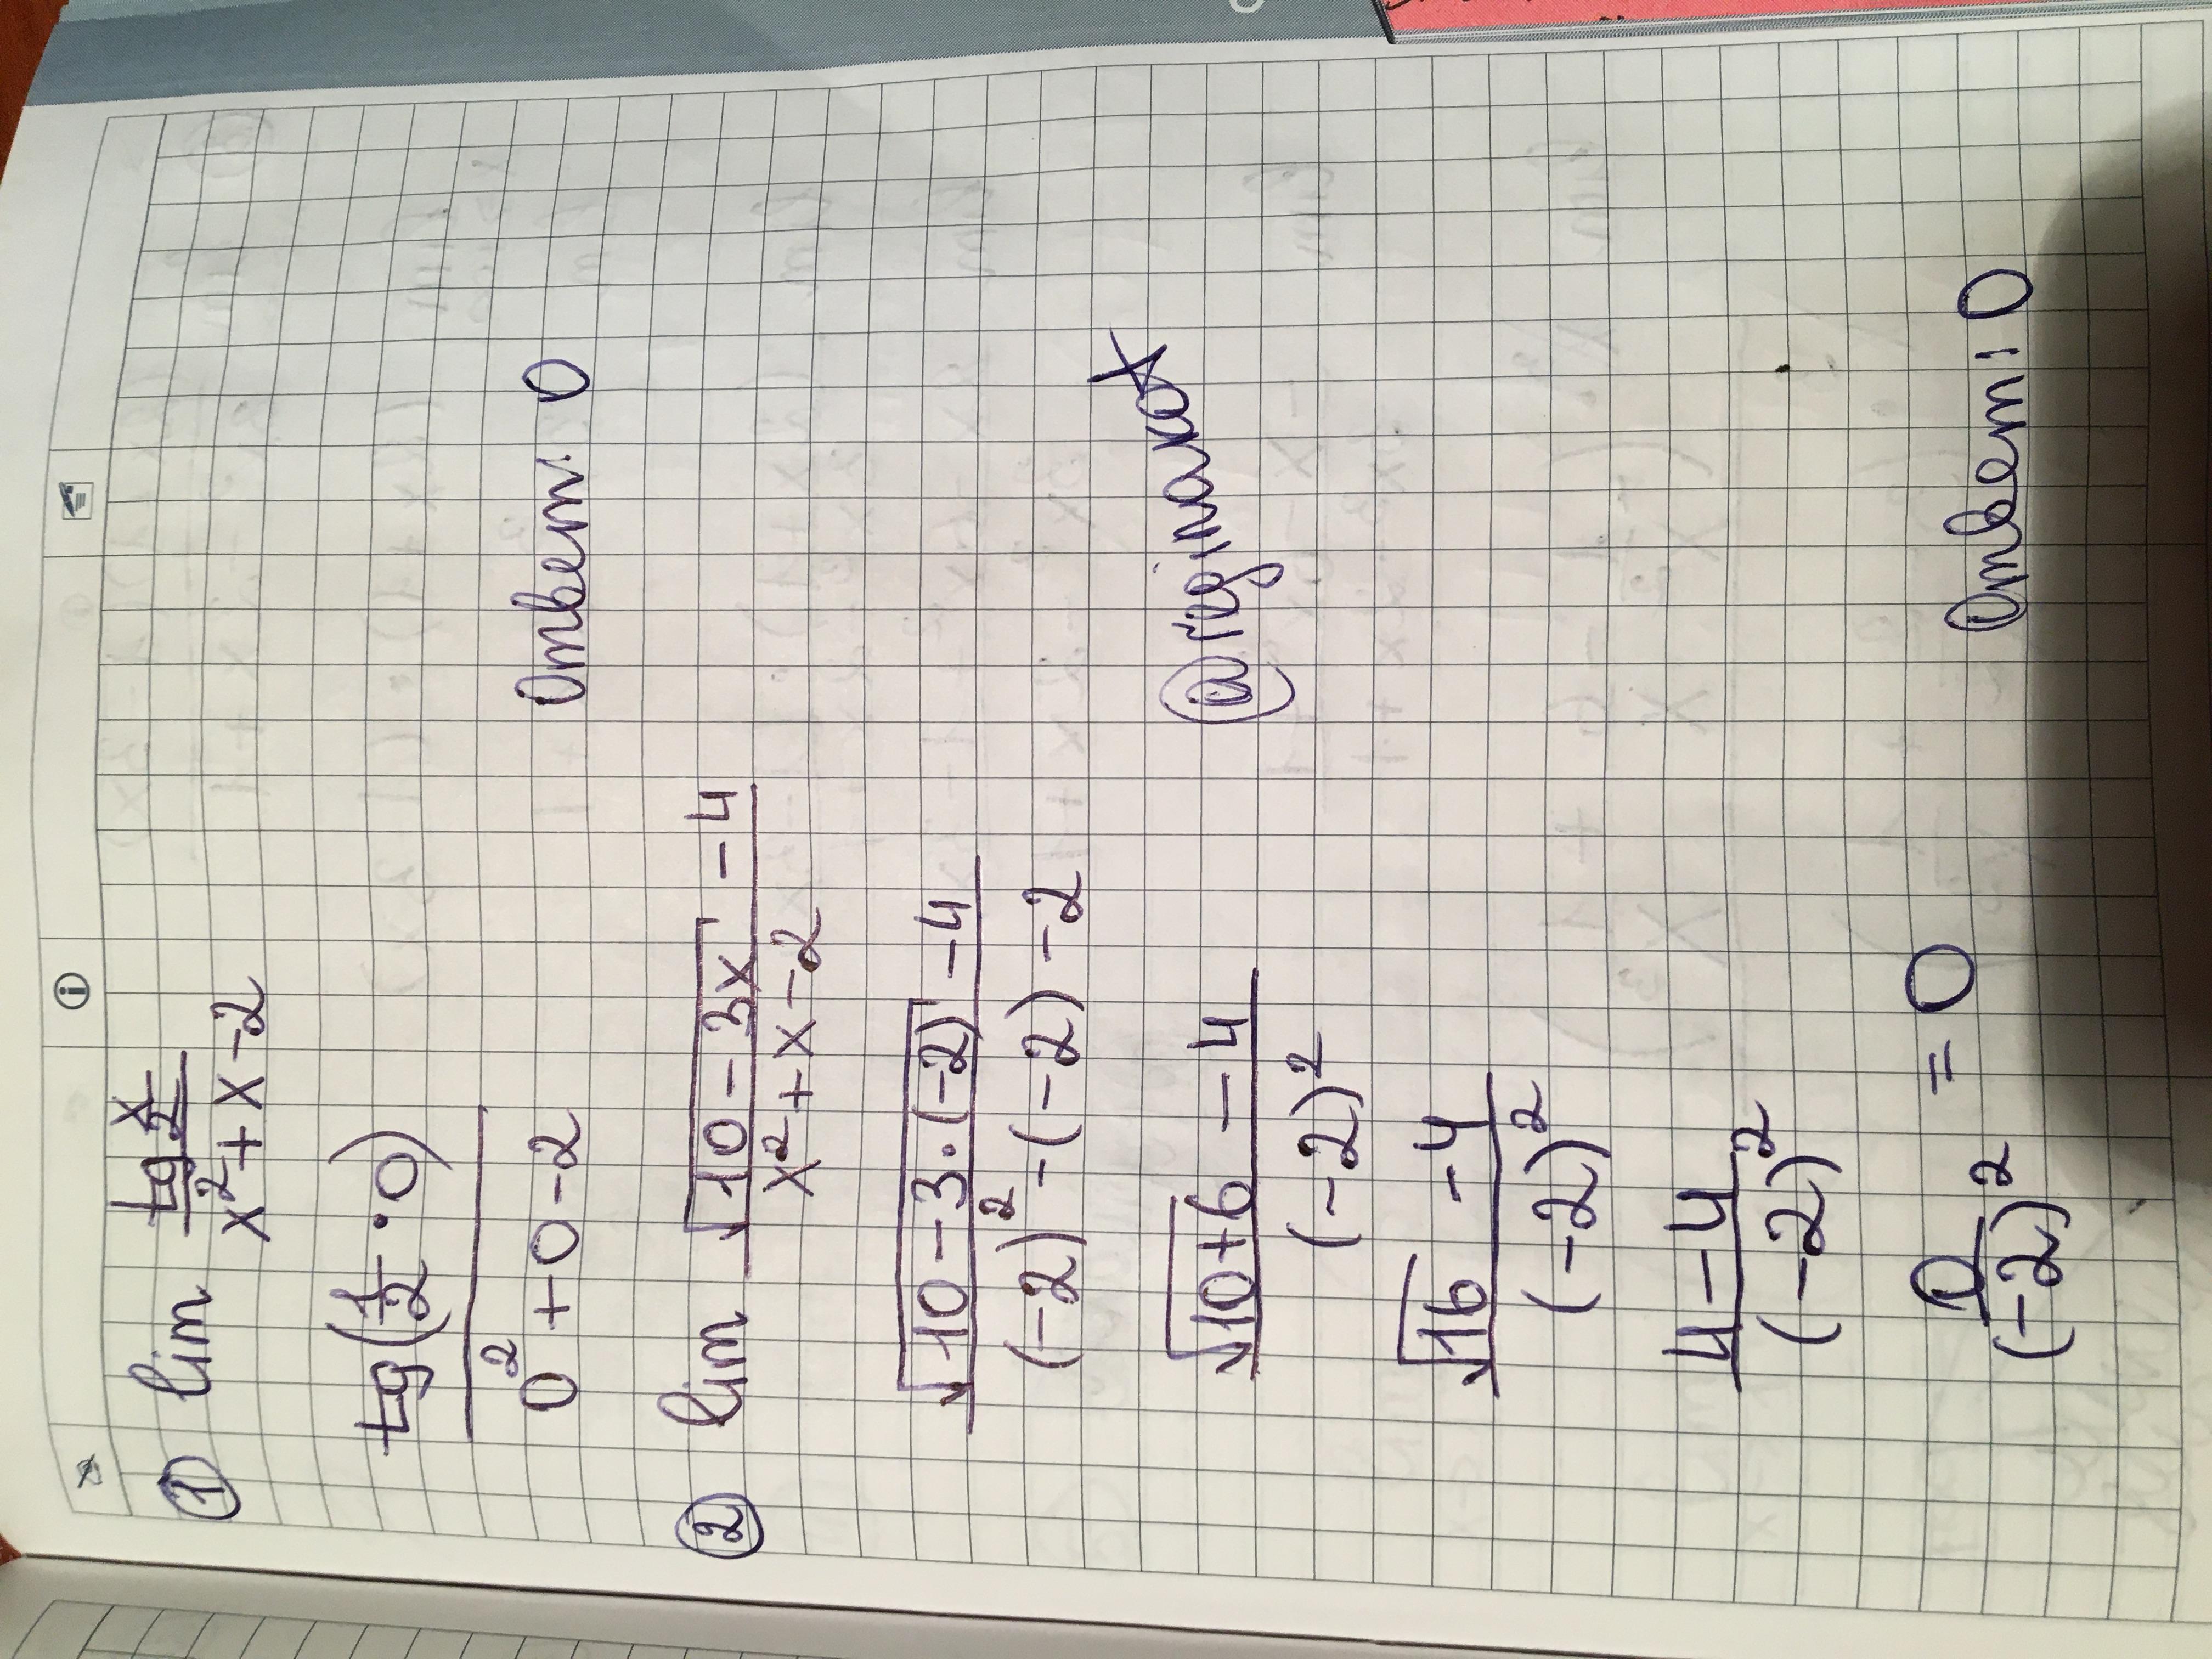 ① lim tg x/2
x² + x - 2
tg(1/2 · 0)
0² + 0 - 2
Ответ: 0
② lim √10 - 3x - 4
x² + x - 2
√10 - 3 · (-2) - 4
(-2)² - (-2) - 2
√10 + 6 - 4
(-2)²
√16 - 4
(-2)²
4 - 4
(-2)²
0
(-2)² = 0
Ответ: 0